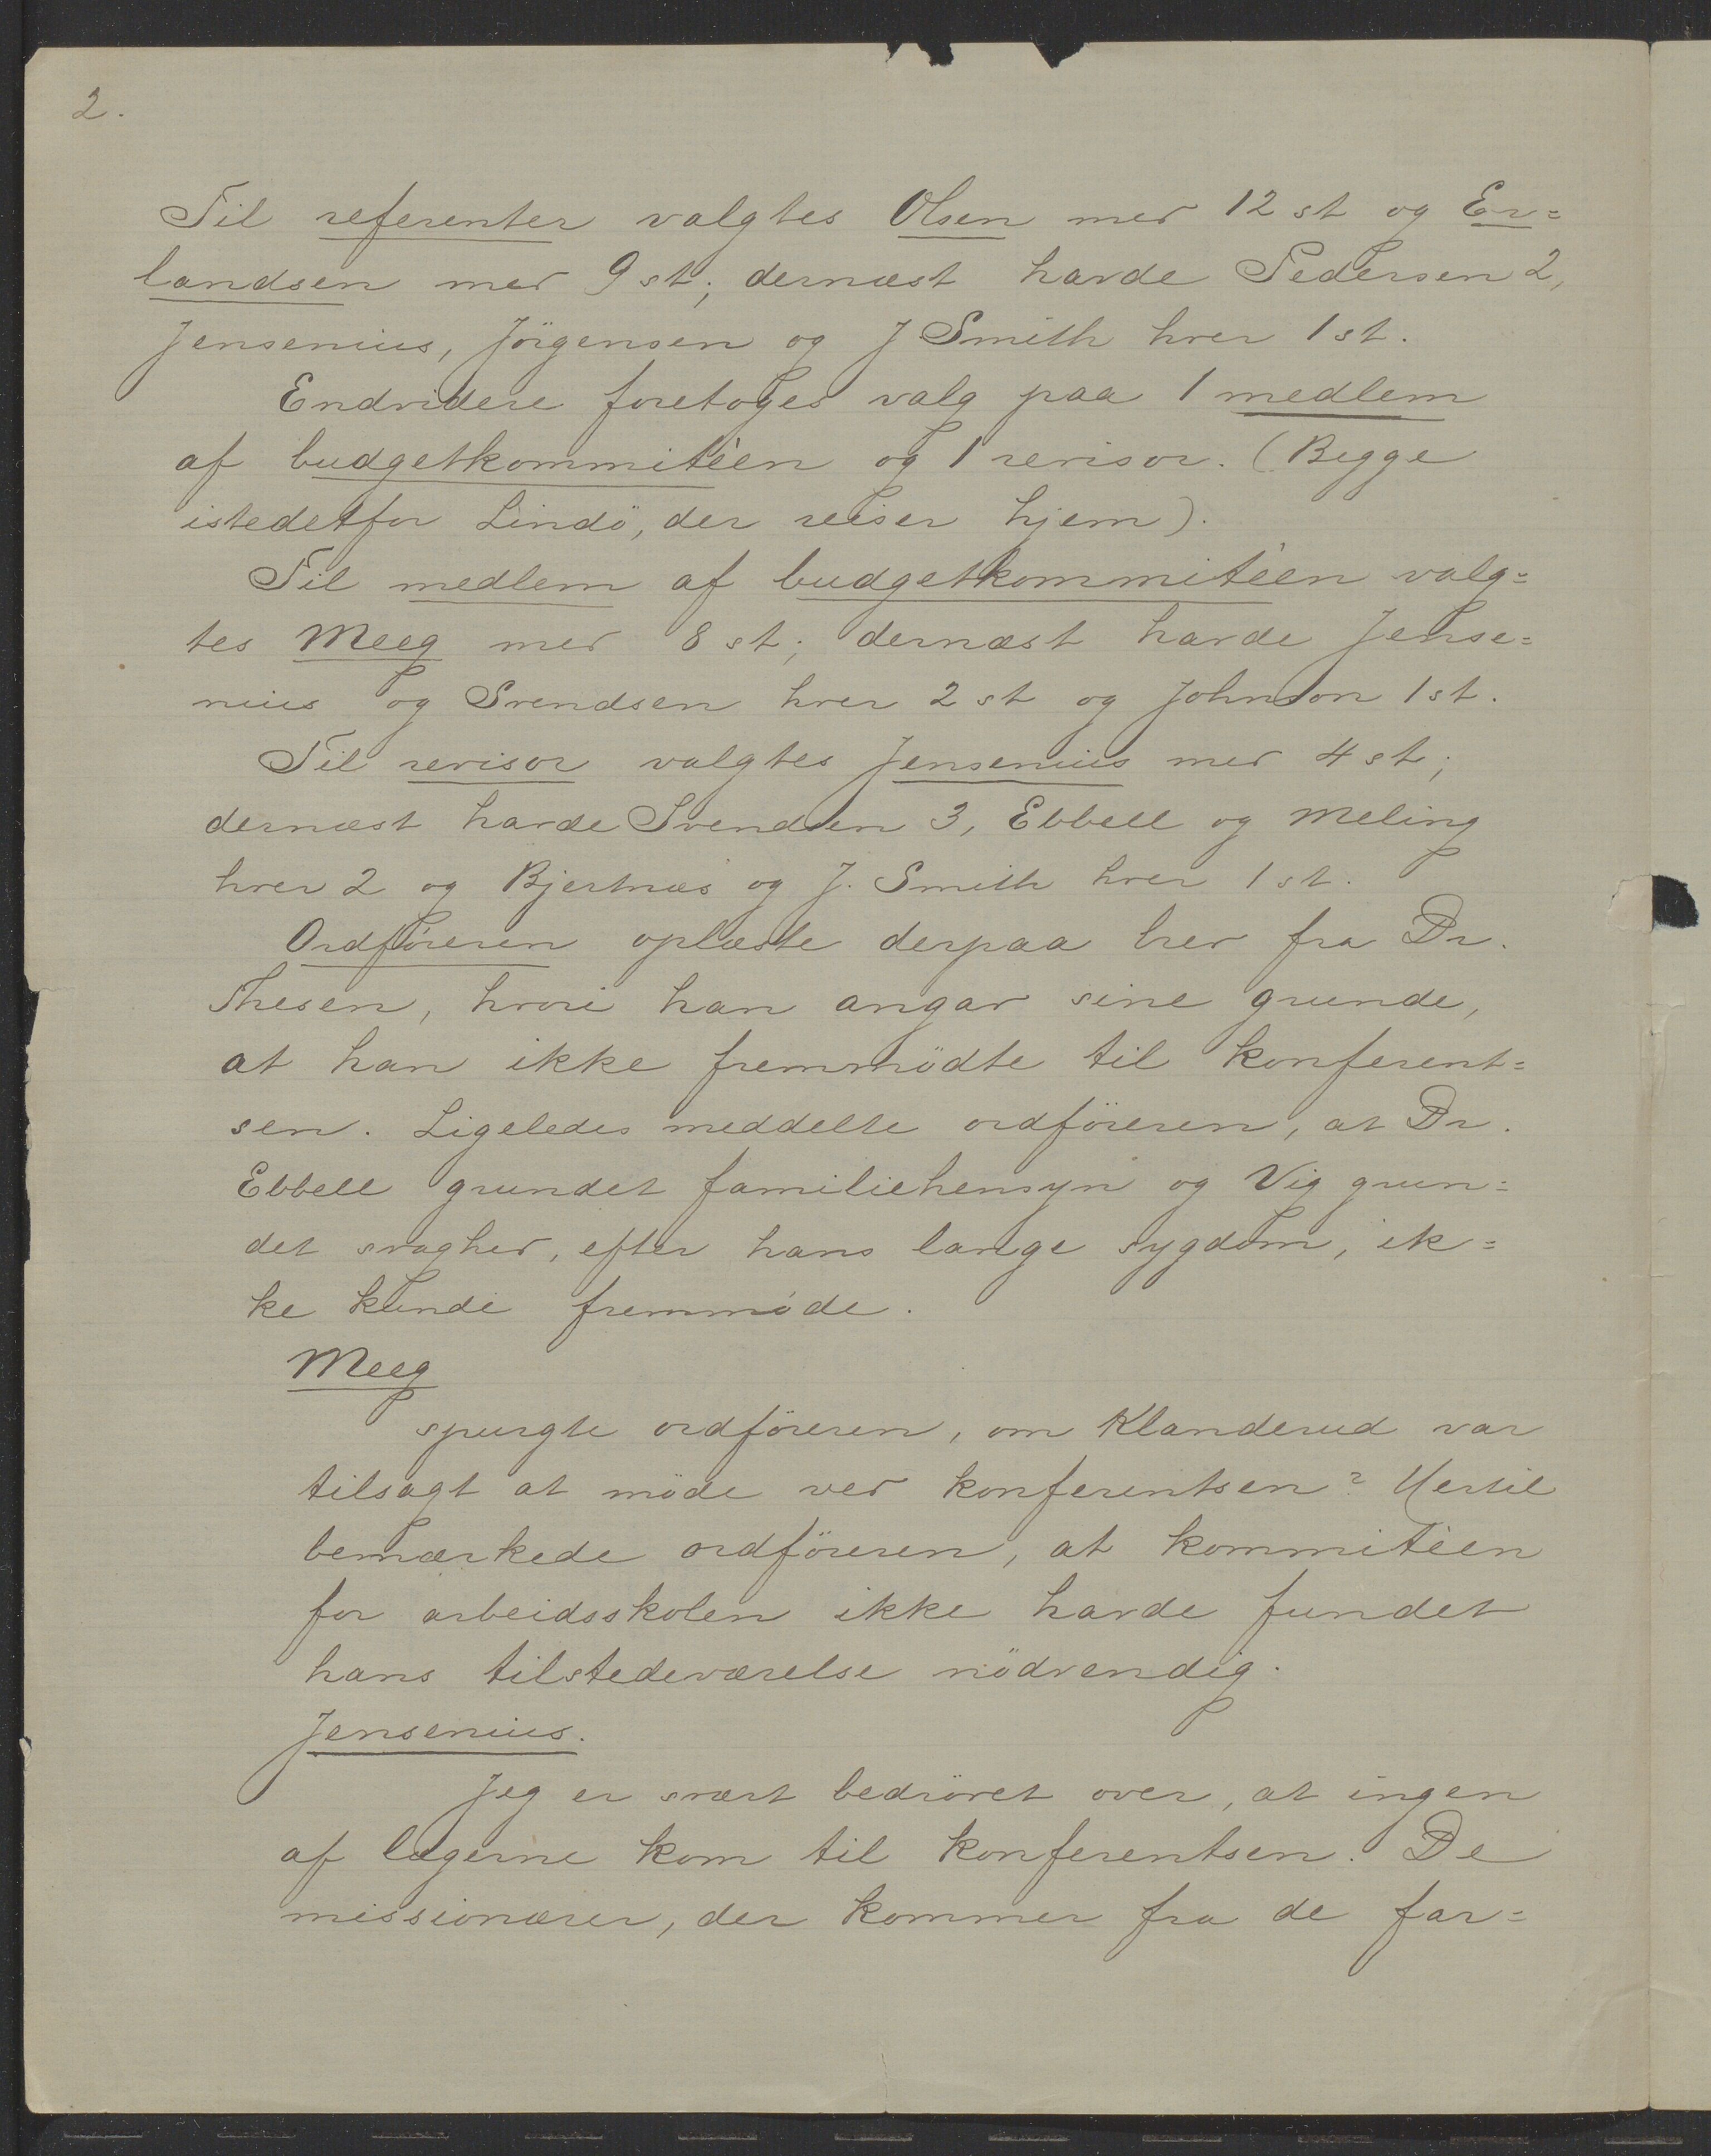 2.
Til referenter valgtes Olsen med 12 st og Er=
landsen med 9 st; dernæst havde Pedersen 2,
Jensenius, Jörgensen og J Smith hver 1 st.
Endvidere foretoges valg paa 1 medlem
af budgetkommitéen og 1 revisor. (Begge
istedetfor Lindö, der reiser hjem).
Til medlem af budgetkommitéen valg=
tes Meeg med 8 st; dernæst havde Jense=
nius og Svendsen hver 2 st og Johnson 1 st.
Til revisor valgtes Jensenius med 4 st;
dernæst havde Svendsen 3, Ebbell og Meling
hver 2 og Bjertnæs og J. Smith hver 1 st.
Ordföreren oplæste derpaa brev fra Dr.
Thesen, hvori han angav sine grunde,
at han ikke fremmödte til konferent=
sen. Ligeledes meddelte ordföreren, at Dr.
Ebbell grundet familiehensyn og Vig grun=
det svaghed, efter hans lange sygdom, ik=
ke kunde fremmöde.
Meeg
spurgte ordföreren, om Klanderud var
tilsagt at möde ved konferentsen? Hertil
bemærkede ordföreren, at kommitéen
for arbeidsskolen ikke havde fundet
hans tilstedeværelse nödvendig.
Jensenius.
Jeg er svært bedrövet over, at ingen
af lægerne kom til konferentsen. De
missionærer, der kommer fra de far=